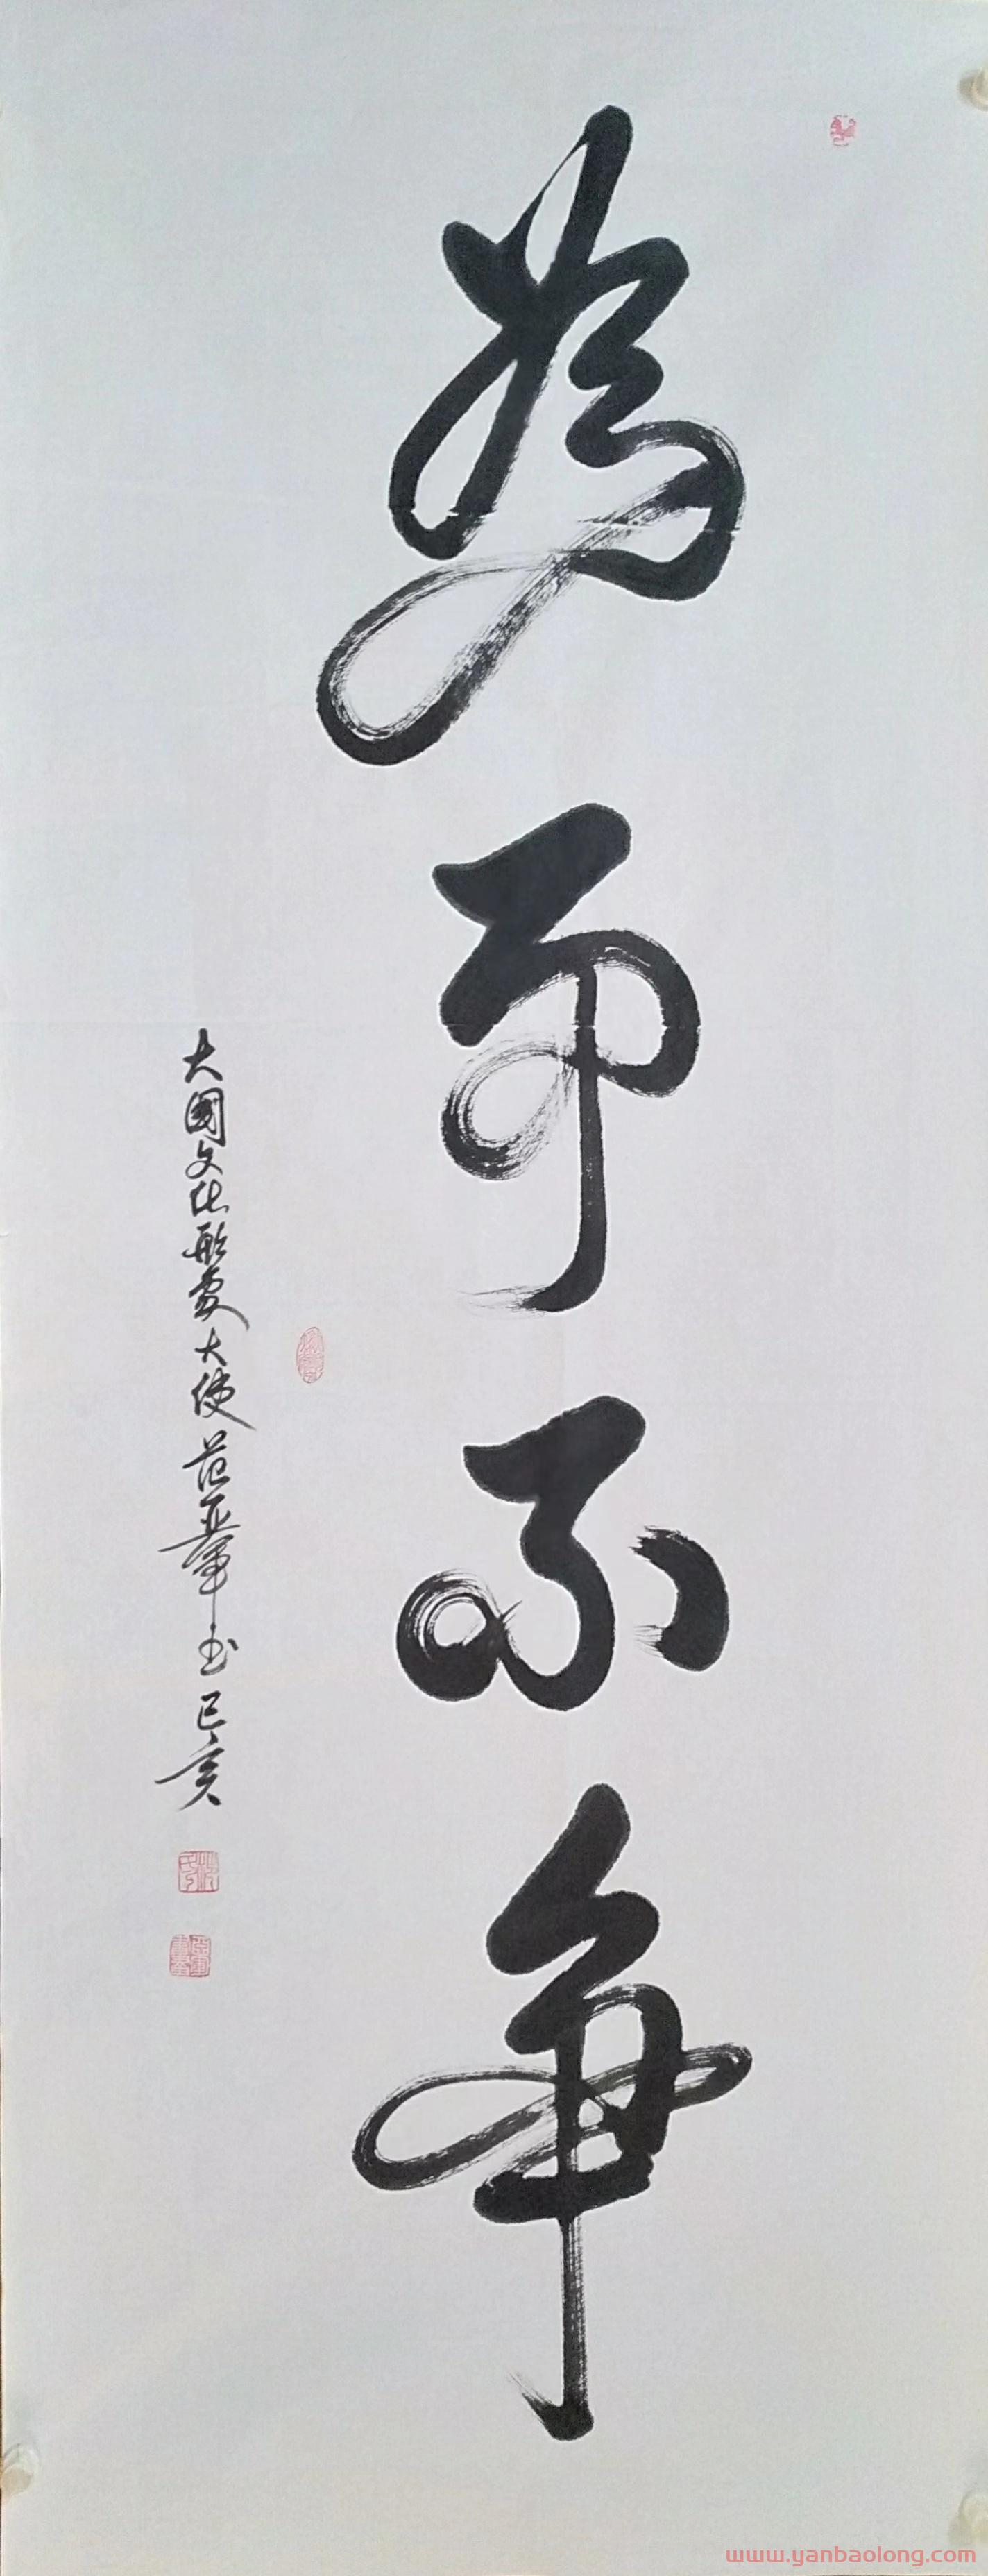 為而不争
大國文化形象大使范亞軍书己亥
www.yanbaolong.com